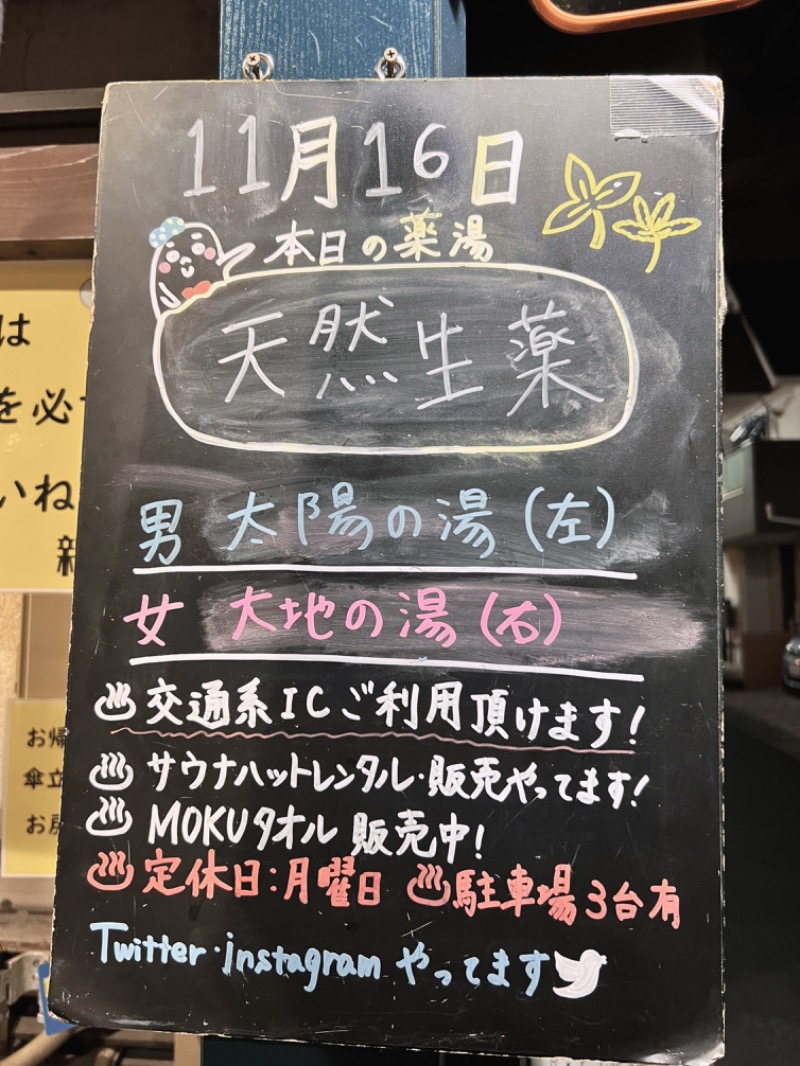 11月16日
本日の薬湯
天然生薬
男 太陽の湯(左)
女 大地の湯(右)
♨交通系ICご利用頂けます!
♨サウナハットレンタル・販売やってます!
♨MOKUタオル販売中!
♨定休日:月曜日 ♨駐車場3台有
Twitter・instagramやってます
は
を必
いね
新
お帰
傘立
お戻